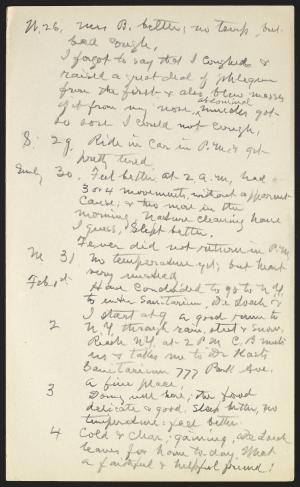 W. 26. Mrs B. better; no temp, but
bad cough.
I forgot to say that I coughed &
raised a great deal of phlegm
from the first & also blew masses
of it from my nose, abdominal muscles got
so sore I could not cough.
S. 29. Ride in car in P.M. & got
pretty tired.
30. Felt better at 2 a.m., had
3 or 4 movements, without apparent
cause; & two more in the
morning. Nature cleaning house
I guess. Slept better.
Fever did not return in P.M.
M 31 No temperature yet; but heart
very
Feb 1st Have concluded to go to N.Y.
to enter Sanitarium,
I start at 9 a good run to
2 N.Y. through rain, sleet & snow.
Reach N.Y. at 2 P.M. C. B. meets
us & takes me to Dr
Sanitarium 777 Park Ave.
A fine place.
3 Doing well here; the food
delicate & good. Sleep better, no
temperature: feel better.
4 Cold & clear; gaining,
leaves for home to day. What
a faithful & helpful friend!